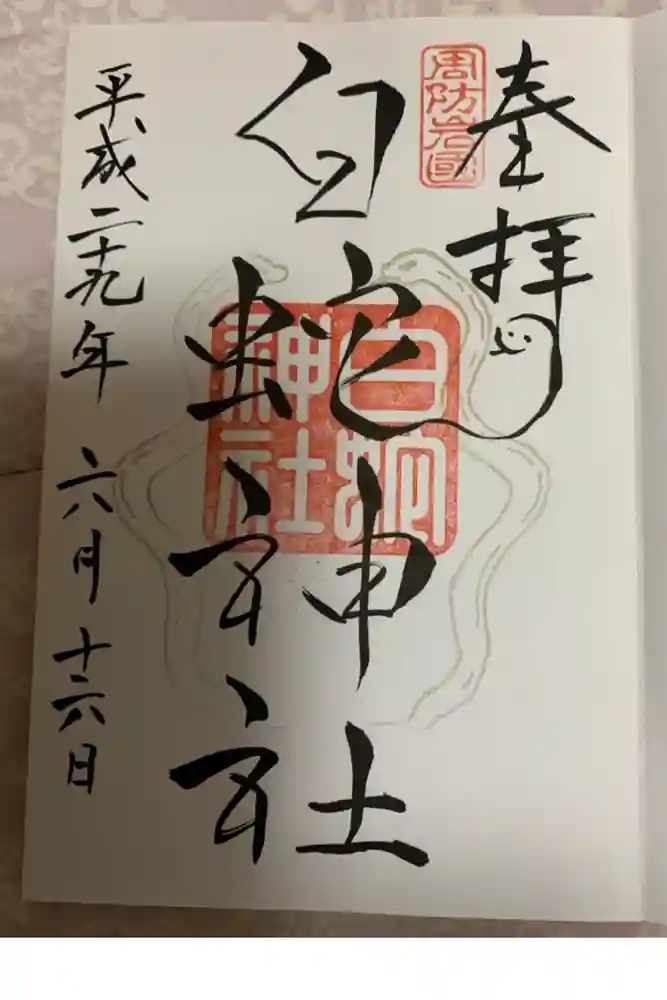 奉拝
周防岩國
白蛇神社
白蛇
神社
平成二十九年 六月十六日